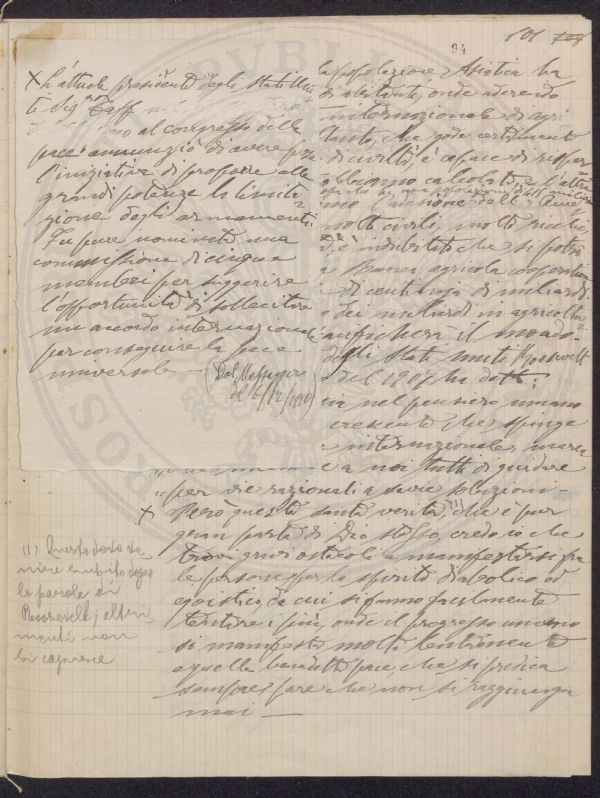 101
94
X L'attuale presidente degli Stati Uni
ti Sig. Taff
al congresso della
pace annunziò di avere preso
l'iniziativa di proporre alle
grandi potenze la limita
zione degli armamenti
Fu pure nominata una
commissione di cinque
membri per suggerire
l'opportunità di sollecitare
un accordo internazionale
per conseguire la pace
universale —
(Dal Messaggero
del 6/12/1910)
la popolazione Asiatica ha
di abitanti, onde aderendo
internazionale di agri
tanto, che gode certamente
di civiltà è capace di
abbiamo calcolato, e l'altra
mo l'azione dell'
molto civili, molto
è indubitato che si potrà
Banca agricola cooperativa
di centinaja di miliardi
dei miliardi in agricoltu
il mondo.
degli Stati Uniti Roosevelt
del 1907 ha detto:
nel pensiero umano
crescente che spinge
internazionale,
e a noi tutti di guidare
" per vie razionali a savie soluzioni
X Però questa santa verità, (1) che è pur
gran parte di Dio stesso, credo io che
trovi gravi ostacoli a manifestarsi fra
le persone per lo spirito diabolico ed
egoistico, da cui si fanno facilmente
tentare i più, onde il progresso umano
si manifesta molto lentamente
e quella benedetta pace, che si predica
sempre, pare che non si raggiunga
mai —
(1) Questo deve ve
nire subito dopo
le parole di
Roosevelt; altri
menti non
si capisce